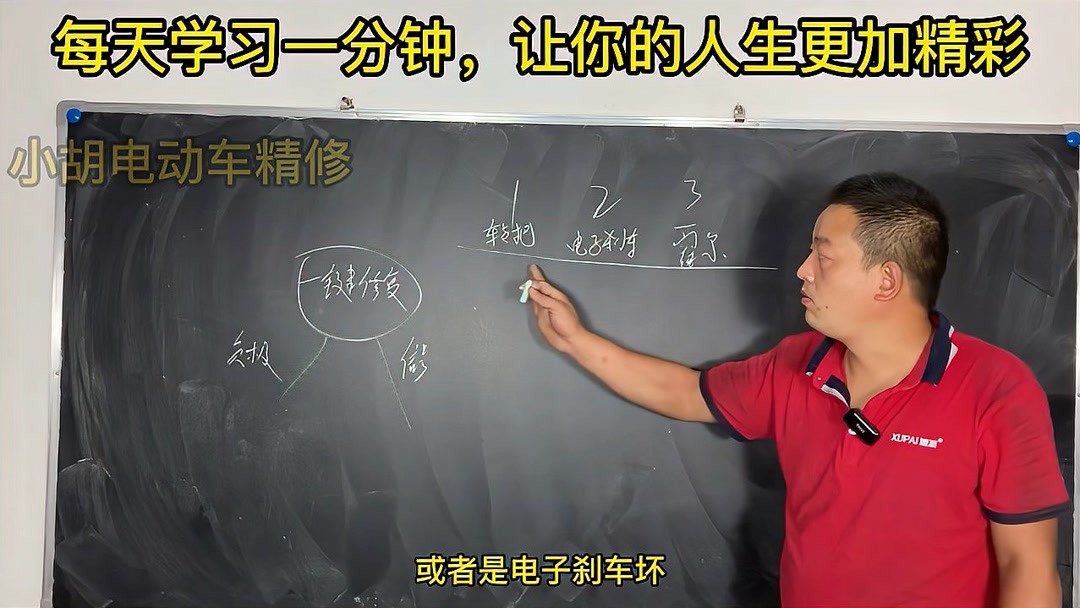 每天学习一分钟，让你的人生更加精彩
小胡电动车精修
1 2 3
转把 电子刹车 霍尔
一键修复
负极
信号
XUPAI 旭派®
或者是电子刹车坏